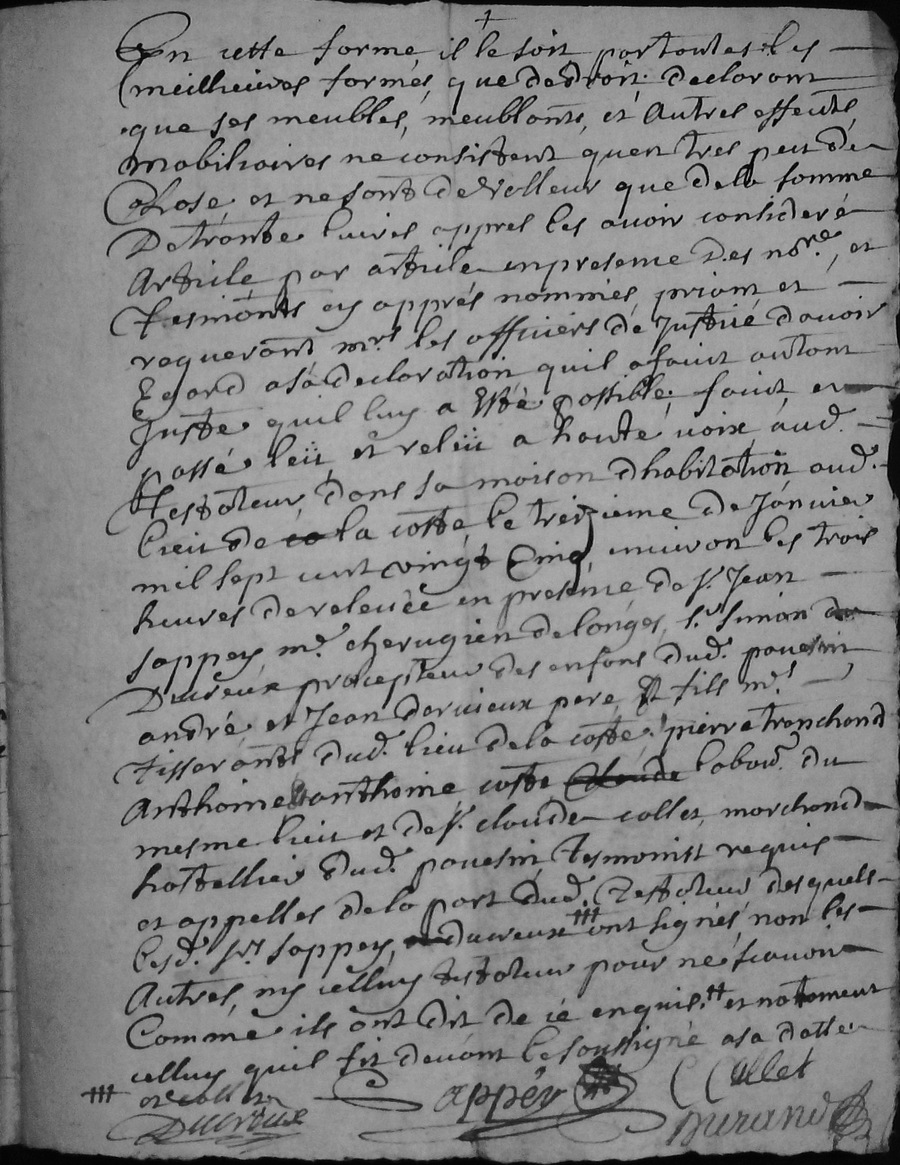 En cette forme il le soit par toutes les
meillieures formes, que de droit. declarant
que ses meubles, meublants, et autres effects
mobiliaires ne consistent quen tres peu de
chose, et ne sont de valleur que de la somme
De trante livres appres les avoir consideré
Article par article en presence des nore, et
Tesmonts cy apprés nommés, priant et
requerant mrs les officiers de Justice davoir
Egard a sa declaration quil a faict autant
Juste quil luy a Esté possible, faict, et
passé leü, et releü a haute voix aud.
Testateur, dans sa maison dhabitation aud.
lieu de la coste le treizieme de Janvier
mil sept cent vingt Cinq environ les trois
heures de relevée en presence de sr. Jean
sappey, me. cherugien de longes, sr. simon
Ducreux precepteur des enfans dud. pavesin
andré, et Jean dervieux pere, et fils mes
Tisserants dud. lieu de la coste, pierre tranchand
Anthoine anthoine coste Claude labour. du
mesme lieu et de sr. claude collet, marchand
hostellier dud. pavesin, Tesmoinst requis
et appelles de la part dud. Testateur desquels
lesd. srs sappey, ducreux ont signés, non les
Autres, ny celluy testateur pour ne scavoir
Comme ils ont dit de ce enquis, et notament
celluy quil fit devant le soussigné a sa datte
et collet
Sappey Collet
Ducreux Durand